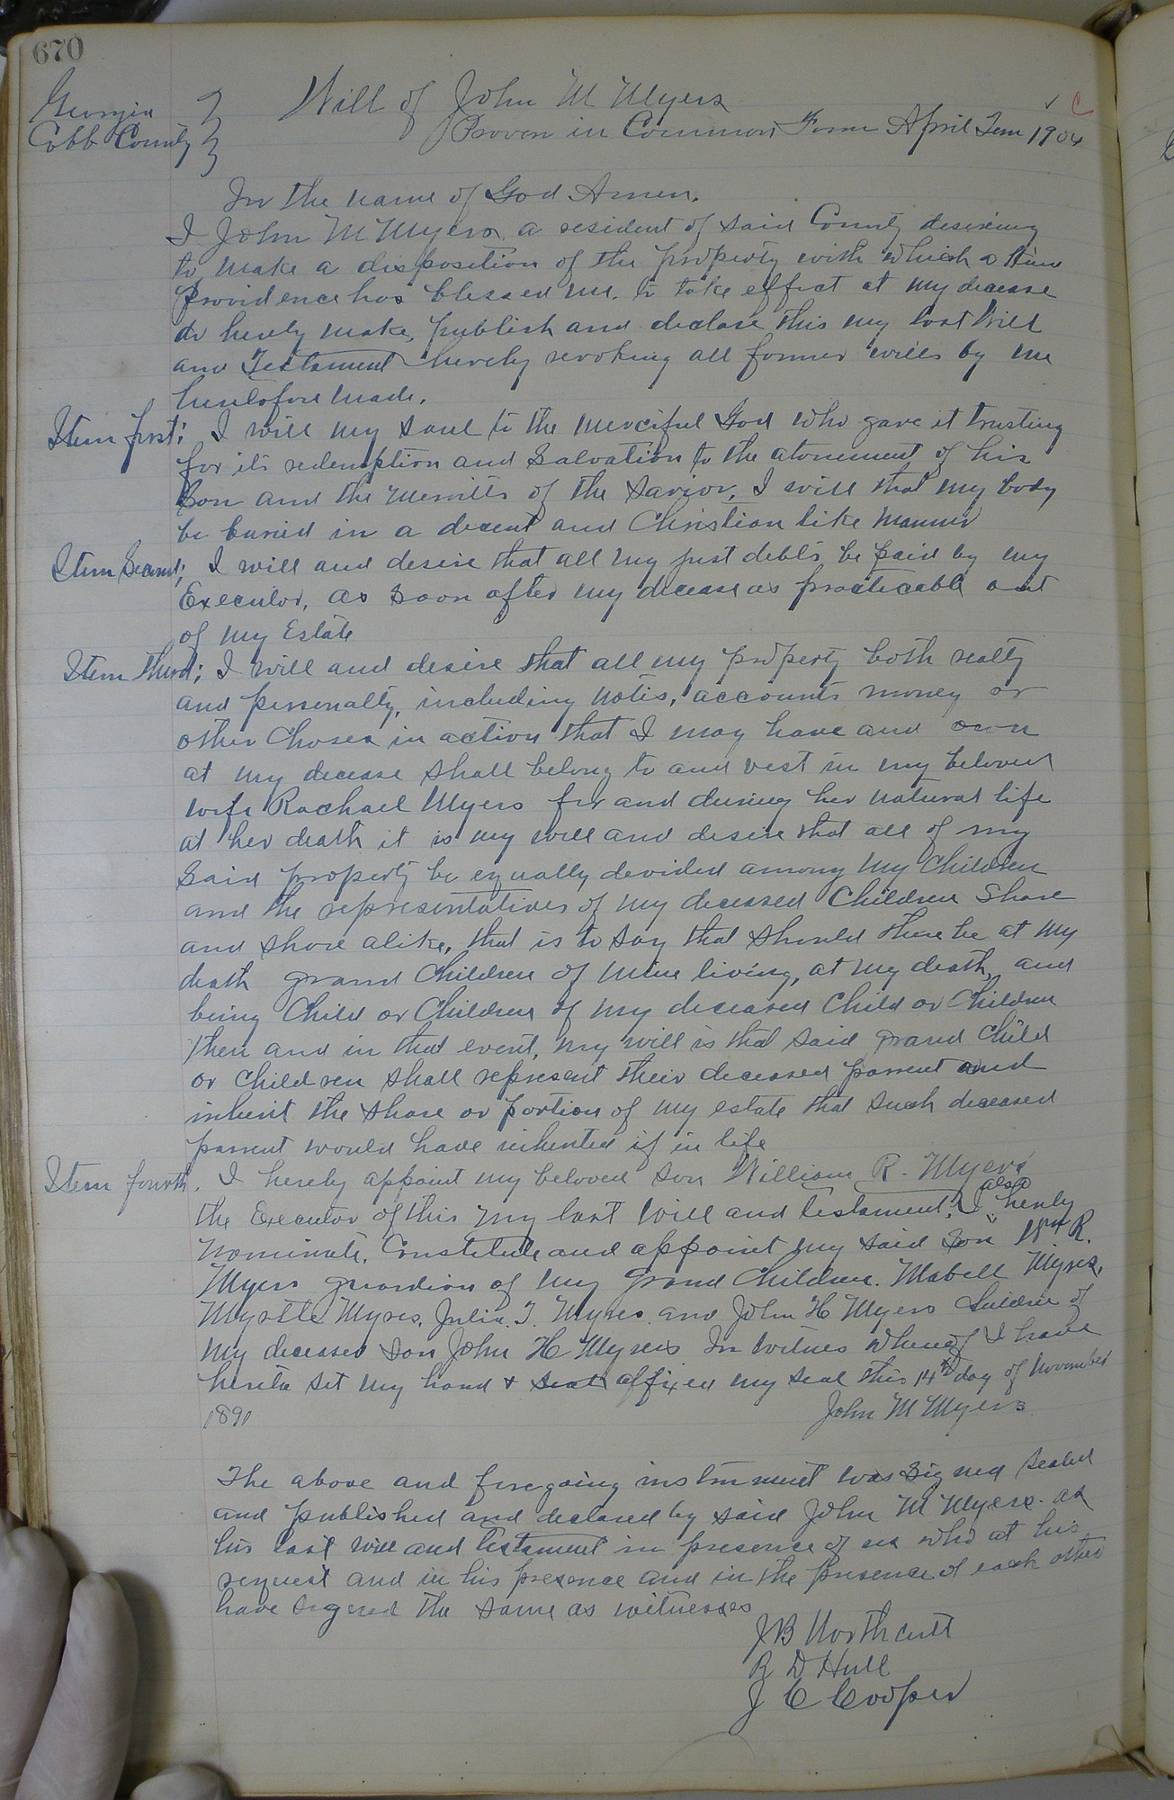 670
Georgia
Cobb County
Will of John M Myers
Proven in Common Form April Term 1904
In the name of God Amen.
I John M Myers a resident of said County desireing
to make a disposition of the property with which a
Providence has blessed me. to take effect at my decease
do hereby make, publish and declare this my last Will
and Testament hereby revoking all former wills by me
heretofore made.
Item first: I will my soul to the merciful God who gave it trusting
for its redemption and Salvation to the atonement of his
Son and the Merrits of the Savior. I will that my body
be buried in a decent and Christian like manner
Item Second; I will and desire that all my just debts be paid by my
Executor, as soon after my decease as practicable out
of my Estate
Item third; I will and desire that all my property both realty
and personalty, including notes, accounts money or
other Choses in action that I may have and own
at my decease shall belong to and vest in my beloved
wife Rachael Myers for and during her natural life
at her death it is my will and desire that all of my
said property be equally devided among my Children
and the representatives of my deceased Children Share
and share alike, that is to say that should there be at my
death grand Children of mine living, at my death, and
being Child or Children of my deceased Child or Children
then and in that event, my will is that said grand Child
or Children shall represent their deceased parent and
inherit the share or portion of my estate that such deceased
parent would have inherited if in life
Item fourth. I hereby appoint my beloved son William R. Myers
the Executor of this my last Will and testament. I also hereby
nominate, Constitute and appoint my said Son Wm R.
Myers guardian of my grand Children. Mabell Myres,
Myrtte Myres, Julia. T. Myres and John H Myers Children of
my deceased son John H Myers In witness whereof I have
hereto set my hand & seal affixed my seal this 14th day of November
1891
John M Myers
The above and foregoing instrument was signed sealed
and published and declared by said John M Myers. as
his last will and testament in presence of us who at his
request and in his presence and in the presence of each other
have signed the same as witnesses
J B Northcutt
R D Hull
J C Cooper